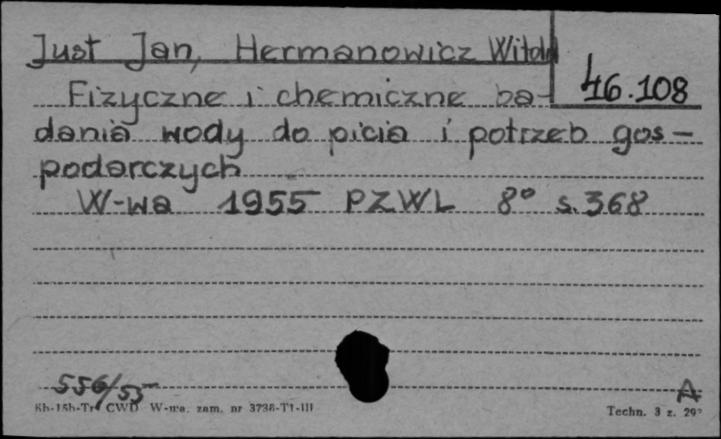 Just Jan, Hermanowicz Witold
46.108
Fizyczne i chemiczne ba-
dania wody do picia i potrzeb gos-
podarczych
W-wa 1955 PZWL 8° s. 368
556/55
A
Kh-15h-Tr CWD W-wa. zam. nr 3738-T1-III
Techn. 3 z. 29²